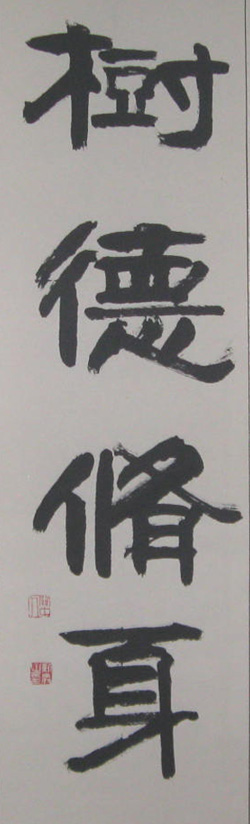 樹德脩身